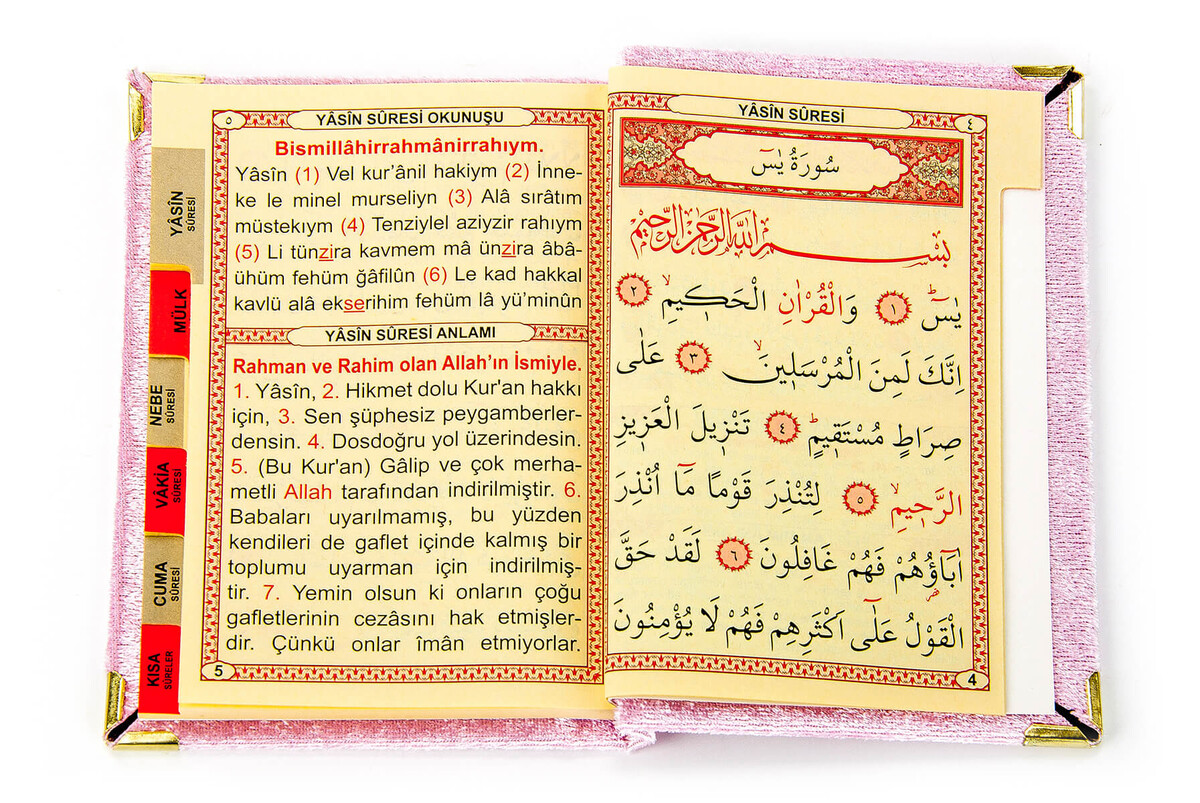 ٥
YÂSÎN SÛRESİ OKUNUŞU
Bismillâhirrahmânirrahıym.
Yâsîn (1) Vel kur’ânil hakiym (2) İnne-
ke le minel murseliyn (3) Alâ sırâtım
müstekıym (4) Tenziylel aziyzir rahıym
(5) Li tünzira kavmem mâ ünzira âbâ-
ühüm fehüm ğâfilûn (6) Le kad hakkal
kavlü alâ ekserihim fehüm lâ yü’minûn
YÂSÎN SÛRESİ ANLAMI
Rahman ve Rahim olan Allah’ın İsmiyle.
1. Yâsîn, 2. Hikmet dolu Kur'an hakkı
için, 3. Sen şüphesiz peygamberler-
densin. 4. Dosdoğru yol üzerindesin.
5. (Bu Kur'an) Gâlip ve çok merha-
metli Allah tarafından indirilmiştir. 6.
Babaları uyarılmamış, bu yüzden
kendileri de gaflet içinde kalmış bir
toplumu uyarman için indirilmiş-
tir. 7. Yemin olsun ki onların çoğu
gafletlerinin cezâsını hak etmişler-
dir. Çünkü onlar îmân etmiyorlar.
5
YÂSÎN
SÛRESİ
MÜLK
NEBE
SÛRESİ
VÂKIA
SÛRESİ
CUMA
SÛRESİ
KISA
SÛRELER
YÂSÎN SÛRESİ
٤
سُورَةُ يٰسٓ
بِسْمِ اللّٰهِ الرَّحْمٰنِ الرَّحِيمِ
يٰسٓ ۚ ١ وَالْقُرْاٰنِ الْحَكٖيمِ ۙ ٢
اِنَّكَ لَمِنَ الْمُرْسَلٖينَ ۙ ٣ عَلٰى
صِرَاطٍ مُسْتَقٖيمٍ ؕ ٤ تَنْزٖيلَ الْعَزٖيزِ
الرَّحٖيمِ ۙ ٥ لِتُنْذِرَ قَوْمًا مَٓا اُنْذِرَ
اٰبَٓاؤُ۬هُمْ فَهُمْ غَافِلُونَ ٦ لَقَدْ حَقَّ
الْقَوْلُ عَلٰٓى اَكْثَرِهِمْ فَهُمْ لَا يُؤْمِنُونَ
4